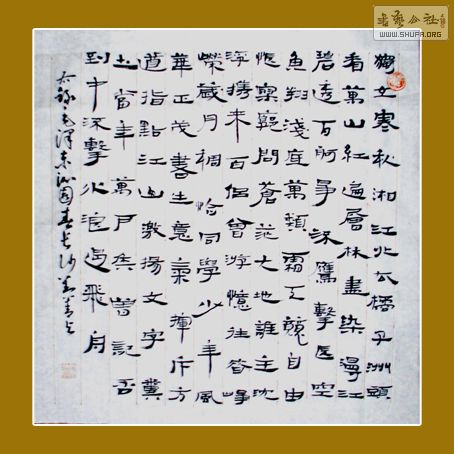 書藝公社
WWW.SHUFA.ORG
獨立寒秋湘江北去橘子洲頭
看萬山紅遍層林盡染漫江
碧透百舸爭流鷹擊長空
魚翔淺底萬類霜天競自由
悵寥廓問蒼茫大地誰主沈
浮攜來百侶曾游憶往昔崢
嶸歲月稠恰同學少年風
華正茂書生意氣揮斥方
遒指點江山激揚文字糞
土當年萬戶侯曾記否
到中流擊水浪遏飛舟
右錄毛澤東沁園春長沙